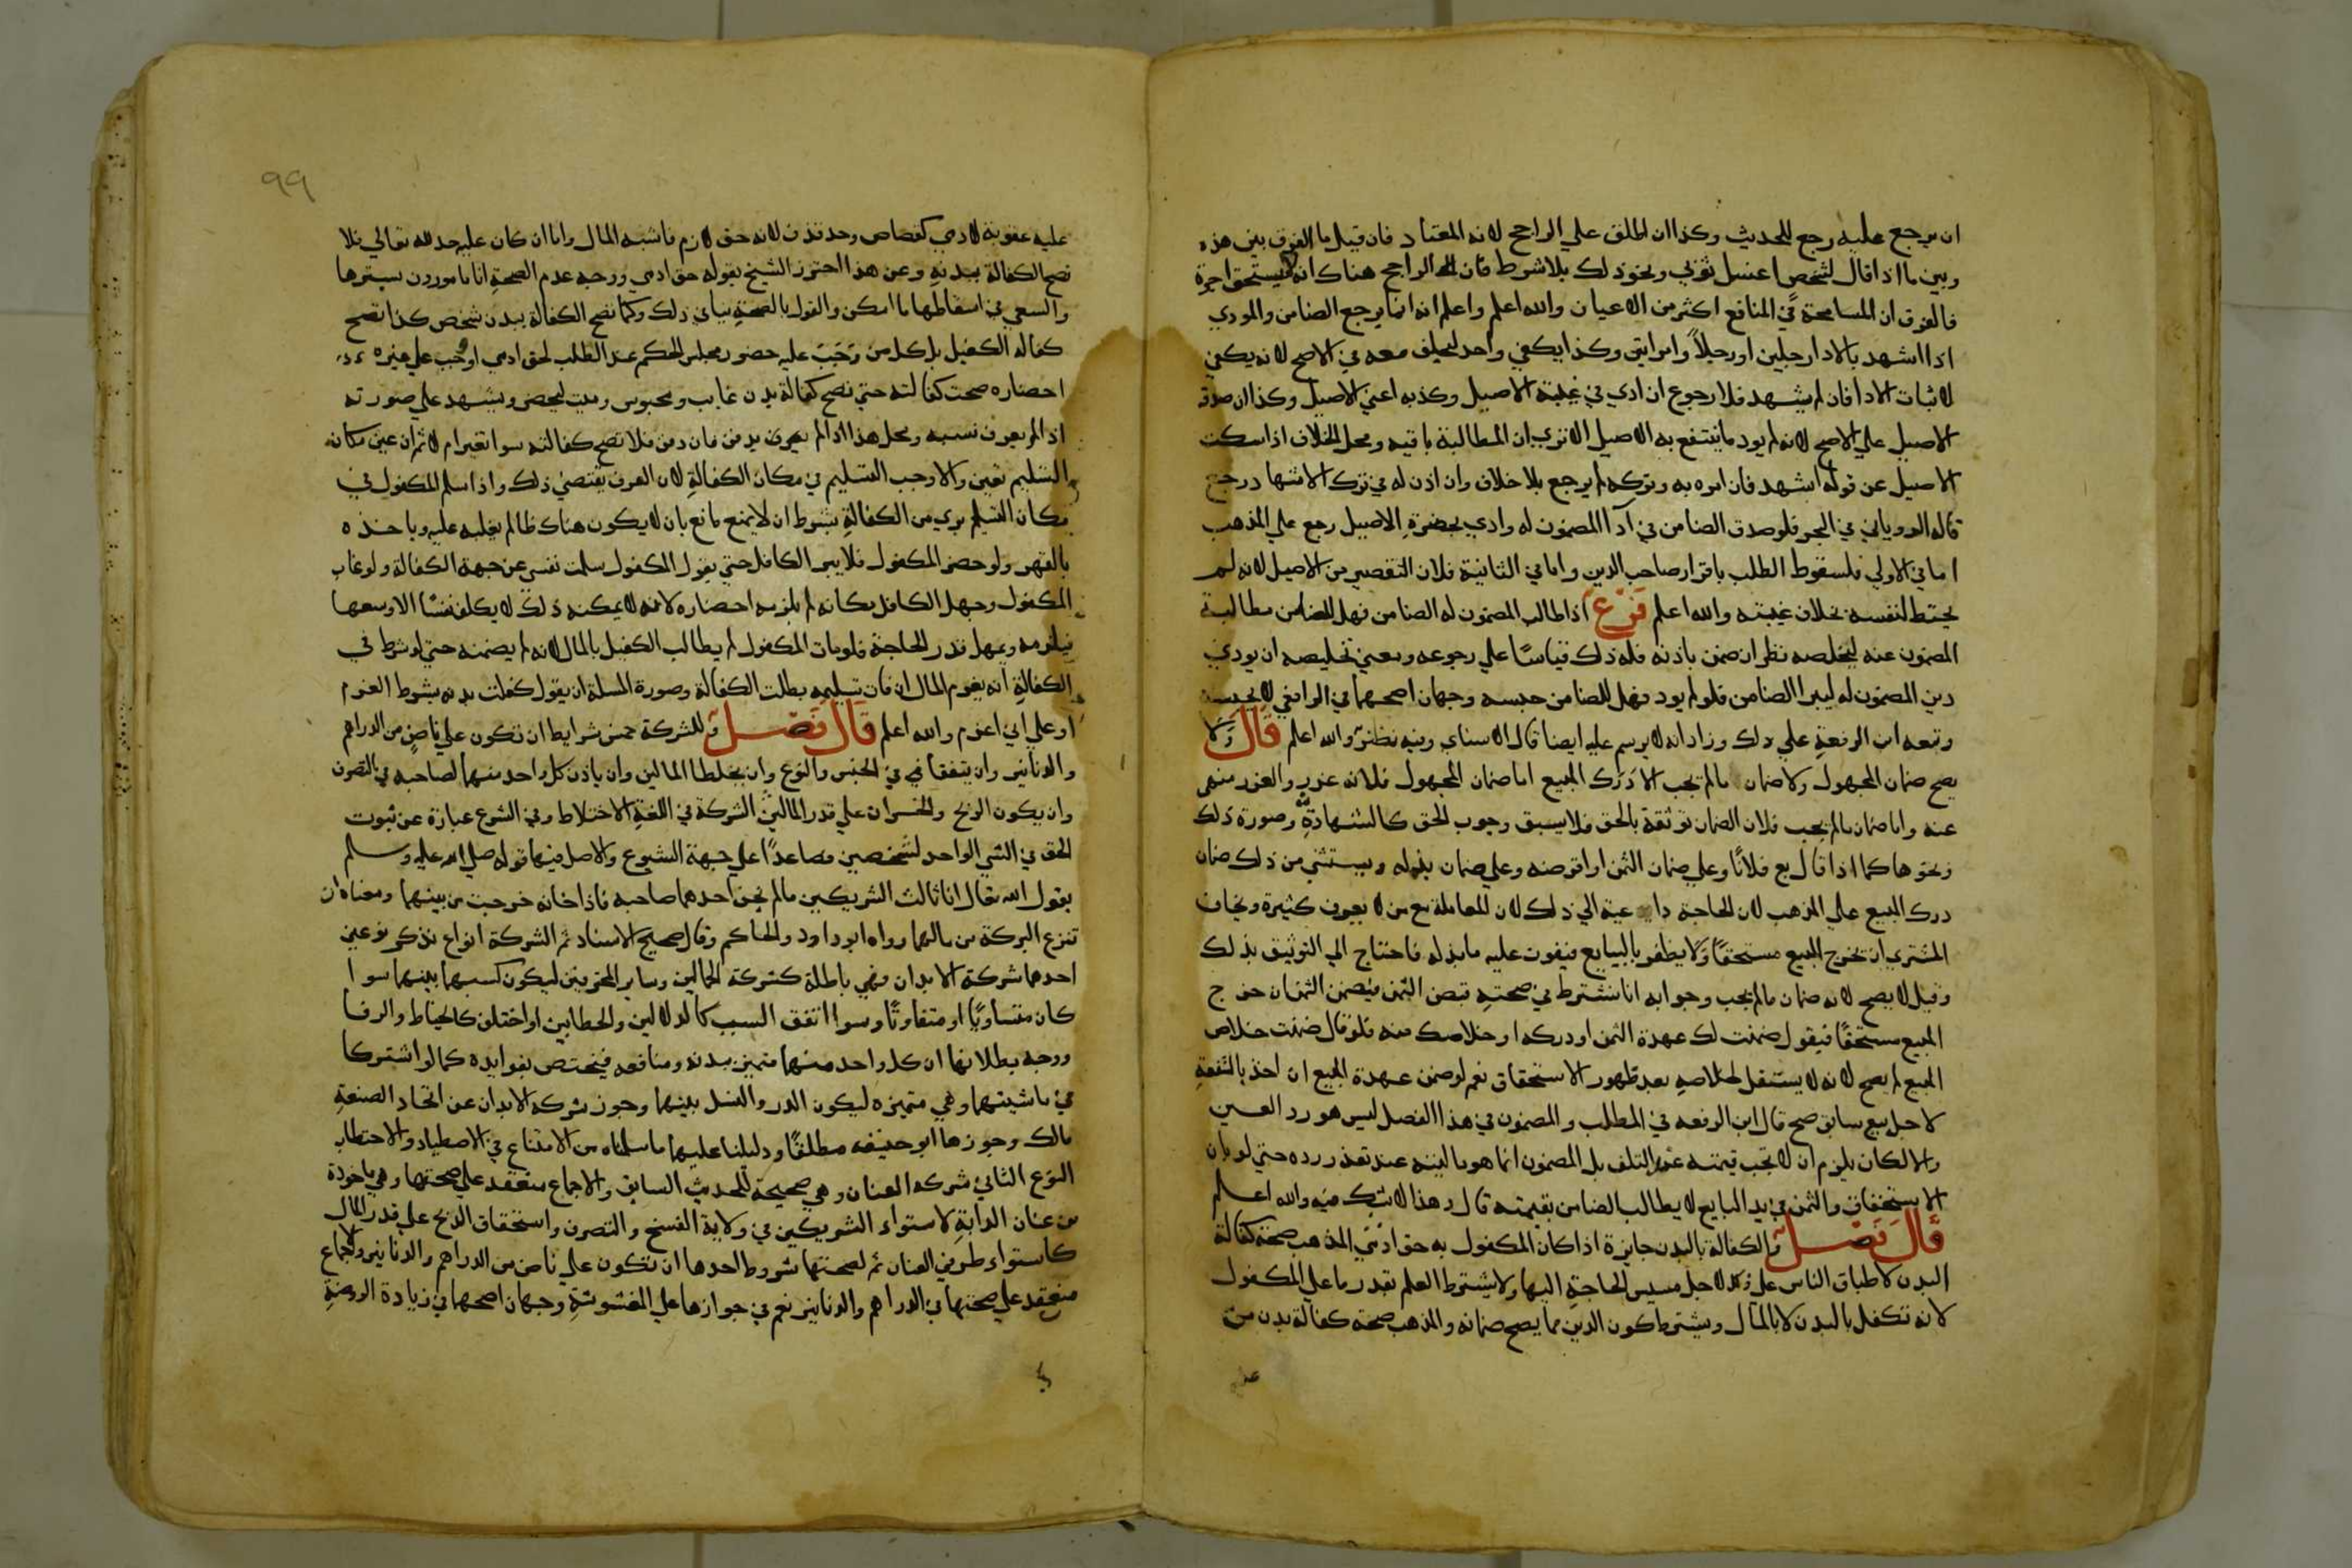 ان يرجع عليه رجع للحديث وكذا ان اطلق علي الراجح لانه المعتاد فان قيل ما الفرق بين هذه
وبين ما اذا قال لشخص اغسل ثوبي ونحو ذلك بلا شرط فان الراجح هناك انه لا يستحق اجرة
فالفرق ان المسامحة في المنافع اكثر من الاعيان والله اعلم واعلم انه انما يرجع الضامن والمودي
اذا اشهد بالادا رجلين او رجلاً وامراتين وكذا يكفي واحد ليحلف معه في الاصح لانه يكفي
لاثبات الادا فان لم يشهد فلا رجوع ان ادي في غيبة الاصيل وكذبه اعني الاصيل وكذا ان صدقه
الاصيل علي الاصح لانه لم يود ما ينتفع به الاصيل الا تري ان المطالبة باقيه ومحل الخلاف اذا سكت
الاصيل عن قوله اشهد فان امره به وتركه لم يرجع بلا خلاف وان اذن له في ترك الاشهاد رجع
قاله الروياني في البحر فلو صدق الضامن في آدآ المضمون له وادي بحضرة الاصيل رجع علي المذهب
اما في الاولي فلسقوط الطلب باقرار صاحب الدين واما في الثانية فلان التقصير من الاصيل لانه لم
يحتط لنفسه بخلاف غيبته والله اعلم فرع اذا طالب المضمون له الضامن فهل للضامن مطالبة
المضمون عنه ليخلصه نظر ان ضمن باذنه فله ذلك قياسًا علي رجوعه ومعني تخليصه ان يودي
دين المضمون له ليبرا الضامن فلو لم يود فهل للضامن حبسه وجهان اصحهما في الرافعي لا يحبسه
وتبعه ابن الرفعة علي ذلك وزاد انه لا يرسم عليه ايضا قال الاسناي وفيه نظر والله اعلم قال ولا
يصح ضمان المجهول ولا ضمان ما لم يجب الا درك المبيع اما ضمان المجهول فلانه غرر والغرر منهي
عنه واما ضمان ما لم يجب فلان الضمان توثقة بالحق فلا يسبق وجوب الحق كالشهادة وصورة ذلك
ونحوها كما اذا قال بع فلانًا وعلي ضمان الثمن او اقرضه وعلي ضمان بذله ويستثني من ذلك ضمان
درك المبيع علي المذهب لان الحاجة داعية الي ذلك لان المعاملة مع من لا يعرف كثيرة ويخاف
المشتري ان يخرج المبيع مستحقًا ولا يظفر بالبايع فيفوت عليه ما بذله فاحتاج الي التوثيق بذلك
وقيل لا يصح لانه ضمان ما لم يجب وجوابه انا نشترط في صحته قبض الثمن فيضمن الثمن ان خرج
المبيع مستحقًا فيقول ضمنت لك عهدة الثمن او دركه او خلاصك منه فلو قال ضمنت خلاص
المبيع لم يصح لانه لا يستقل لخلاصه بعد ظهور الاستحقاق نعم لو ضمن عهدة المبيع ان اخذ بالشفعة
لاجل بيع سابق صح قال ابن الرفعه في المطلب والمضمون في هذا الفصل ليس هو رد العين
والا لكان يلزم ان لا تجب قيمته عند التلف بل المضمون انما هو ماليته عند تعذر رده حتي لو بان
الاستحقاق والثمن في يد البايع لا يطالب الضامن بقيمته قال وهذا لا شك فيه والله اعلم
قال فصل والكفالة بالبدن جايزة اذا كان المكفول به حق ادمي المذهب صحة كفالة
البدن لاطباق الناس علي ذلك لاجل مسيس الحاجة اليها ولا يشترط العلم بقدر ما علي المكفول
لانه تكفل بالبدن لا بالمال ويشترط كون الدين مما يصح ضمانه والمذهب صحة كفالة بدن من
٩٩
عليه عقوبة لادمي كقصاص وحد قذف لانه حق لازم فاشبه المال واما ان كان عليه حد لله تعالي فلا
تصح الكفالة ببدنه وعن هذا احترز الشيخ بقوله حق ادمي ووجه عدم الصحة انا مامورون بسترها
والسعي في اسقاطها ما امكن والقول بالصحة ينافي ذلك وكما تصح الكفالة ببدن شخص كذا تصح
كفالة الكفيل بل كل من وجب عليه حضور مجلس الحكم عند الطلب لحق ادمي او وجب علي غيره
احضاره صحت كفالته حتي تصح كفالة بدن غايب ومحبوس وميت ليحضر ويشهد علي صورته
اذا لم يعرف نسبه ومحل هذا اذا لم يدفن فان دفن فلا تصح كفالته سوا تغير ام لا ثم ان عين مكان
التسليم تعين والا وجب التسليم في مكان الكفالة لان العرف يقتضي ذلك واذا سلم المكفول في
مكان التسليم بري من الكفالة بشرط ان لا يمنع مانع بان لا يكون هناك ظالم يغلبه عليه وياخذه
بالقهر ولو حضر المكفول فلا يبرا الكافل حتي يقول المكفول سلمت نفسي عن جهة الكفالة ولو غاب
المكفول وجهل الكافل مكانه لم يلزمه احضاره لانه لا يمكنه ذلك لا يكلف نفسًا الا وسعها
فيلزمه ويمهل قدر الحاجة فلو مات المكفول لم يطالب الكفيل بالمال لانه لم يضمنه حتي لو شرط في
الكفالة انه يغرم المال ان فات تسليمه بطلت الكفالة وصورة المسلة ان يقول كفلت بدنه بشرط الغرم
او علي اني اغرم والله اعلم قال فصل وللشركة خمس شرايط ان تكون علي ناض من الدراهم
والدنانير وان يتفقا في الجنس والنوع وان يخلطا المالين وان ياذن كل واحد منهما لصاحبه في التصرف
وان يكون الربح والخسران علي قدر المالين الشركة في اللغة الاختلاط وفي الشرع عبارة عن ثبوت
الحق في الشي الواحد لشخصين فصاعدًا علي جهة الشيوع والاصل فيها قوله صلي الله عليه وسلم
يقول الله تعال انا ثالث الشريكين ما لم يخن احدهما صاحبه فاذا خانه خرجت من بينهما ومعناه ان
تنزع البركة من مالهما رواه ابو داود والحاكم وقال صحيح الاسناد ثم الشركة انواع نذكر نوعين
احدها شركة الابدان وهي باطلة كشركة الحمالين وساير المحترفين ليكون كسبهما بينهما سوا
كان متساويًا او متفاوتًا وسوا اتفق السبب كالدلالين والحطابين او اختلف كالخياط والرفا
ووجه بطلانها ان كل واحد منهما متميز ببدنه ومنافعه فيختص بفوايده كما لو اشتركا
في ماشيتهما وهي متميزه ليكون الدر والنسل بينهما وجوز شركة الابدان عن اتحاد الصنعة
مالك وجوزها ابو حنيفه مطلقًا ودليلنا عليهما ما سلماه من الامتناع في الاصطياد والاحتطاب
النوع الثاني شركه العنان وهي صحيحة للحديث السابق والاجماع منعقد علي صحتها وهي ماخوذة
من عنان الدابة لاستواء الشريكين في ولاية الفسخ والتصرف واستحقاق الربح علي قدر المال
كاستواء طرفي العنان ثم لصحتها شروط احدها ان تكون علي ناض من الدراهم والدنانير والاجماع
منعقد علي صحتها في الدراهم والدنانير نعم في جوازها علي المغشوشة وجهان اصحهما في زيادة الروضة